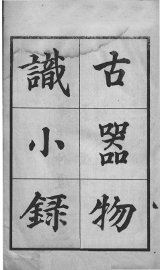 古器物
識小錄